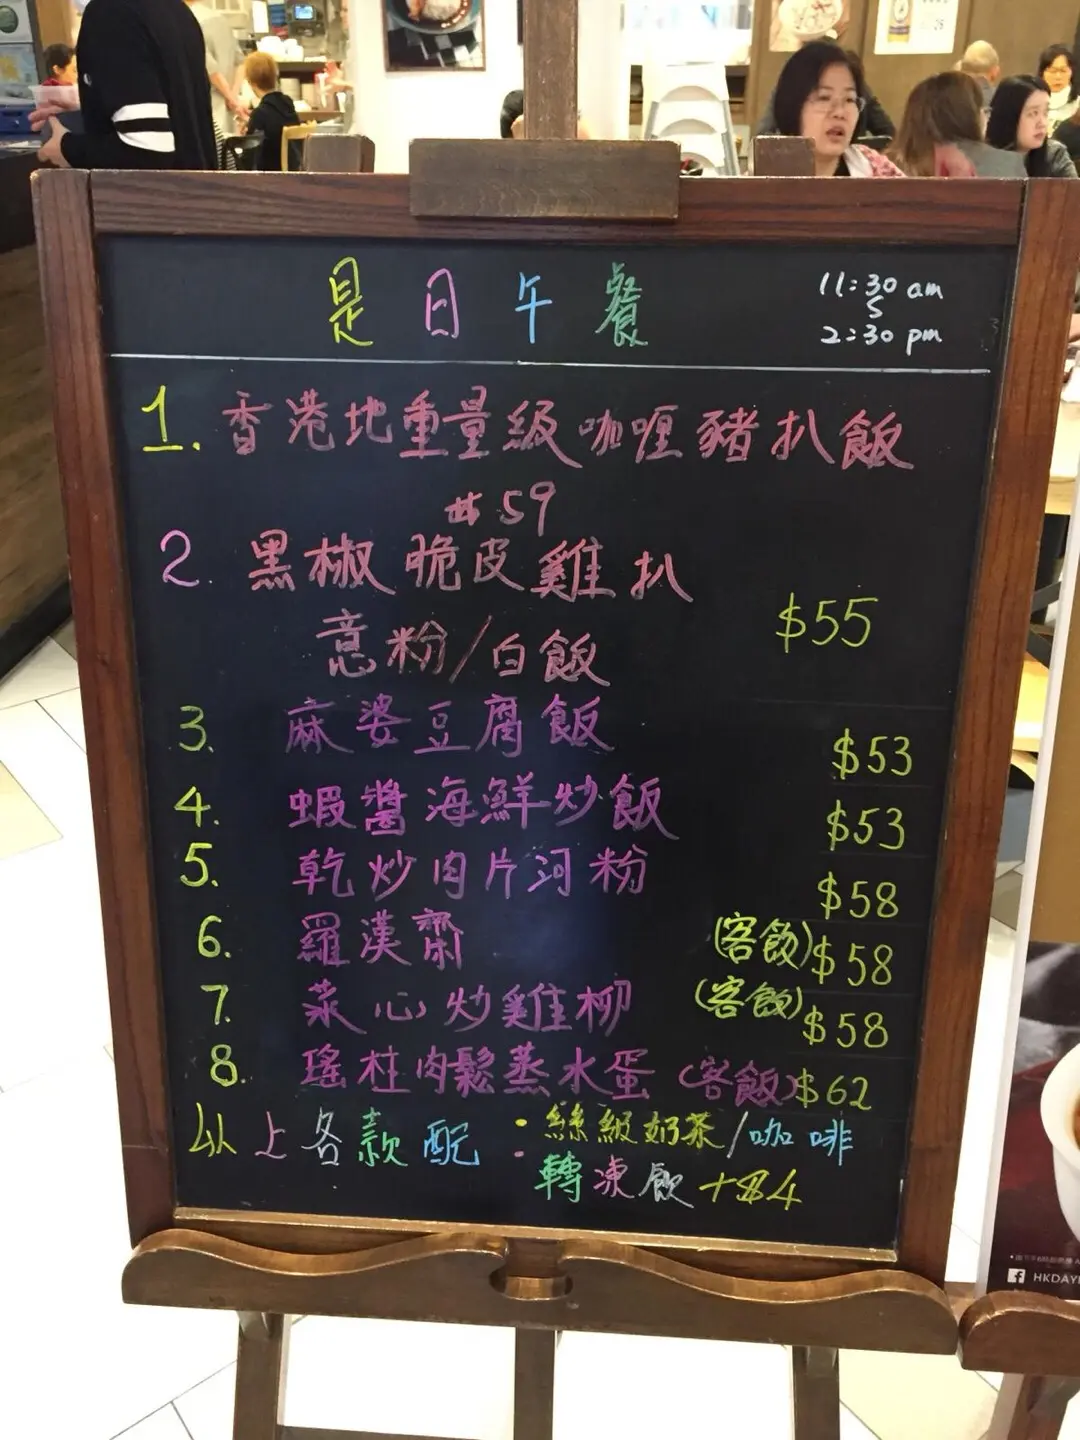 是日午餐
11:30 am
5
2:30 pm
1. 香港地重量級咖喱豬扒飯
$59
2. 黑椒脆皮雞扒
意粉/白飯 $55
3. 麻婆豆腐飯 $53
4. 蝦醬海鮮炒飯 $53
5. 乾炒肉片河粉 $58
6. 羅漢齋 (客飯) $58
7. 菜心炒雞柳 (客飯) $58
8. 瑤柱肉鬆蒸水蛋 (客飯) $62
以上各款配:絲級奶茶/咖啡
轉凍飲 +$4
HKDAY